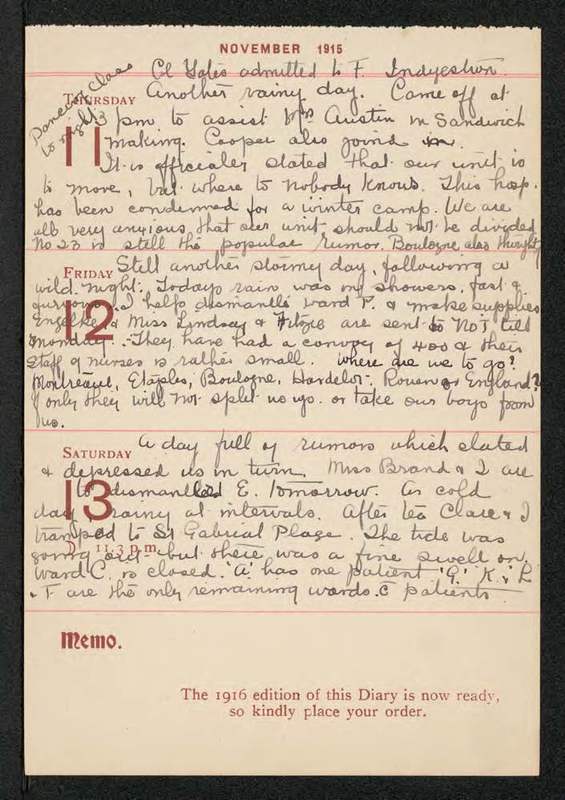 NOVEMBER 1915
Col Yates admitted to F. Indyestion.
Dancing Class
to night
THURSDAY
11
Another rainy day. Came off at
3 pm to assist Mrs Austin in Sandwich
making. Cooper also joined in.
It is officialey stated that our unit is
to move, but where to nobody knows. This hosp.
has been condemned for a winter camp. We are
all very anxious that our unit should not be divided
No 23 is still the popular rumor. Boulogne also thought
FRIDAY
12
Still another stormy day, following a
wild night. Todays rain was only showers, fast &
furious. I help dismantle ward P. & make supplies
Engelke & Miss Lindsay & are sent to No 1 till
Monday. They have had a convoy of 400 & their
staff of nurses is rather small. Where are we to go?
Montreaul, Etaples, Boulogne, Hardelot, Rouen or England?
If only they will not split us up. or take our boys from
us.
SATURDAY
13
A day full of rumors which elated
& depressed us in turn. Miss Brand & I are
to dismantled E. tomorrow. A cold
day, rainy at intervals. After tea Clare & I
tramped to St Gabrial Plage. The tide was
11.3 p.m.
going out but there was a fine swell on.
Ward C. is closed. 'A' has one patient 'G', K, L
& F are the only remaining wards c patients
Memo.
The 1916 edition of this Diary is now ready,
so kindly place your order.